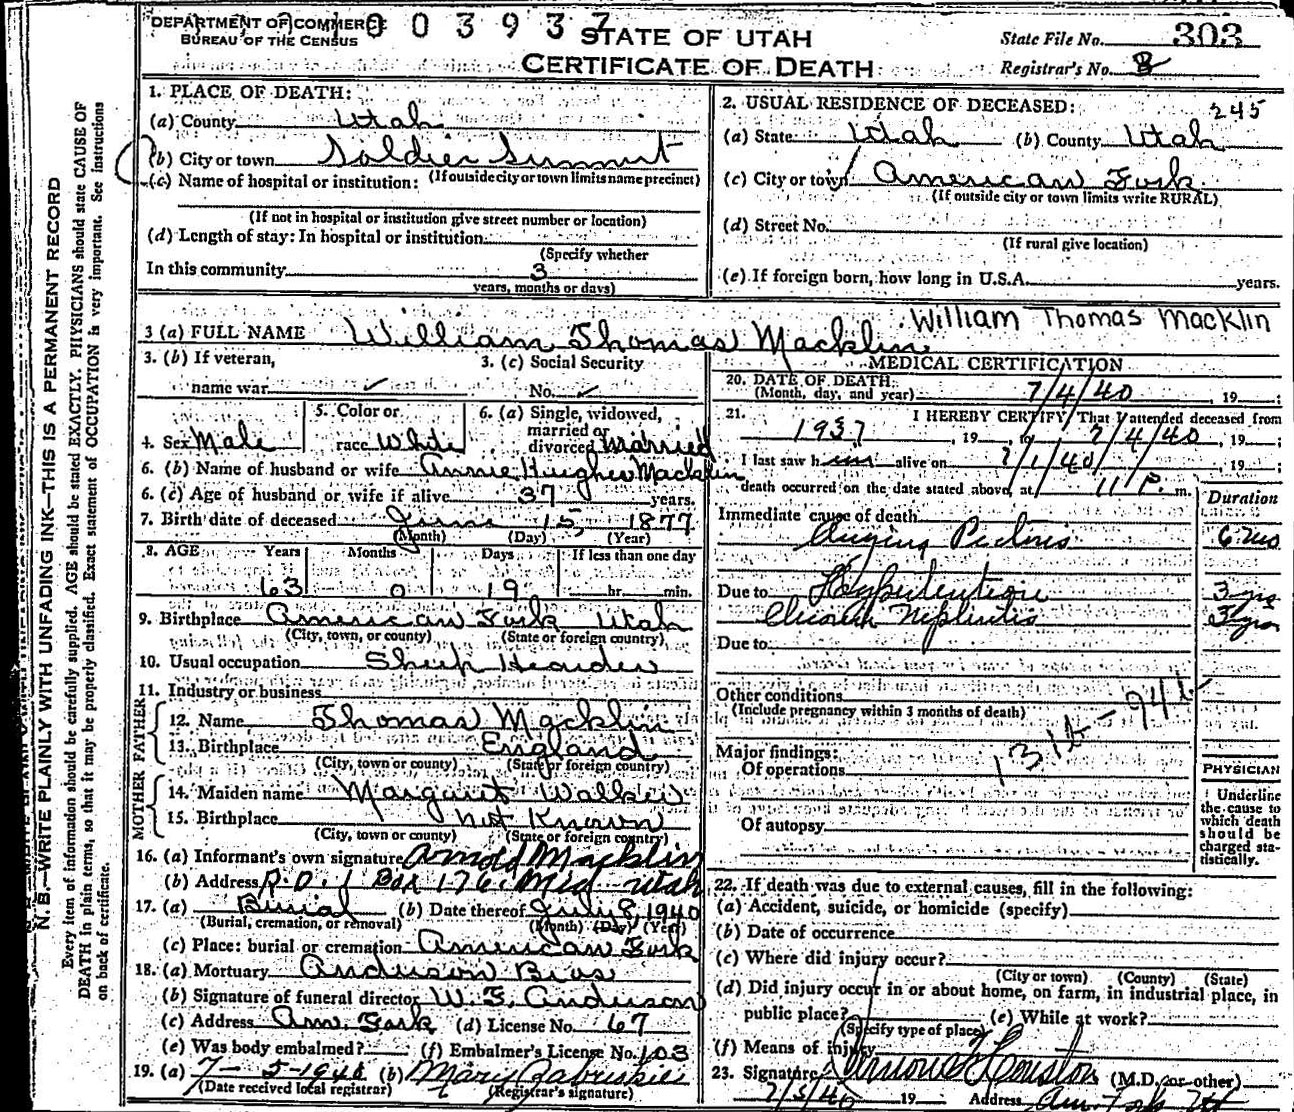 DEPARTMENT OF COMMERCE
BUREAU OF THE CENSUS
0 0 3 9 3 7
STATE OF UTAH
CERTIFICATE OF DEATH
State File No. 303
Registrar's No. 8
N. B.—WRITE PLAINLY WITH UNFADING INK—THIS IS A PERMANENT RECORD
Every item of information should be carefully supplied. AGE should be stated EXACTLY. PHYSICIANS should state CAUSE OF
DEATH in plain terms, so that it may be properly classified. Exact statement of OCCUPATION is very important. See instructions
on back of certificate.
1. PLACE OF DEATH:
(a) County Utah
(b) City or town Soldier Summit
(If outside city or town limits name precinct)
(c) Name of hospital or institution:
(If not in hospital or institution give street number or location)
(d) Length of stay: In hospital or institution
(Specify whether
In this community 3
years, months or days)
2. USUAL RESIDENCE OF DECEASED: 245
(a) State Utah (b) County Utah
(c) City or town American Fork
(If outside city or town limits write RURAL)
(d) Street No.
(If rural give location)
(e) If foreign born, how long in U.S.A. years.
3 (a) FULL NAME William Thomas Macklin William Thomas Macklin
3. (b) If veteran,
name war ✓
3. (c) Social Security
No. ✓
4. Sex Male
5. Color or
race White
6. (a) Single, widowed,
married or
divorced Married
6. (b) Name of husband or wife Annie Hughes Macklin
6. (c) Age of husband or wife if alive 37 years.
7. Birth date of deceased June 15, 1877
(Month) (Day) (Year)
8. AGE Years Months Days If less than one day
63 0 19 hr. min.
9. Birthplace American Fork Utah
(City, town, or county) (State or foreign country)
10. Usual occupation Sheep Hearder
11. Industry or business
FATHER
12. Name Thomas Macklin
13. Birthplace England
(City, town or county) (State or foreign country)
MOTHER
14. Maiden name Margaret Walker
15. Birthplace Not Known
(City, town or county) (State or foreign country)
16. (a) Informant's own signature Arnold Macklin
(b) Address R.D. 1 Box 176 Mid Utah
17. (a) Burial (b) Date thereof July 8, 1940
(Burial, cremation, or removal) (Month) (Day) (Year)
(c) Place: burial or cremation American Fork
18. (a) Mortuary Anderson Bros
(b) Signature of funeral director W. F. Anderson
(c) Address Am. Fork (d) License No. 67
(e) Was body embalmed? (f) Embalmer's License No. 103
19. (a) 7-5-1940 (b) Mary Zabriskie
(Date received local registrar) (Registrar's signature)
MEDICAL CERTIFICATION
20. DATE OF DEATH: 7/4/40
(Month, day, and year) , 19 ;
21. I HEREBY CERTIFY, That I attended deceased from
1937 , 19 , to 7/4/40 , 19 ;
I last saw him alive on 7/1/40 , 19 ;
death occurred on the date stated above, at 11 P. m.
Duration
Immediate cause of death
Angina Pectoris 6 mo
Due to Hypertention 3 yrs
Chronic Nephritis 3 yrs
Due to
Other conditions
(Include pregnancy within 3 months of death)
131b-94b
Major findings:
Of operations
Of autopsy
PHYSICIAN
Underline
the cause to
which death
should be
charged sta-
tistically.
22. If death was due to external causes, fill in the following:
(a) Accident, suicide, or homicide (specify)
(b) Date of occurrence
(c) Where did injury occur?
(City or town) (County) (State)
(d) Did injury occur in or about home, on farm, in industrial place, in
public place? (e) While at work?
(Specify type of place)
(f) Means of injury
23. Signature Houston (M.D. or other)
7/5/40 19 Address Am Fork Ut